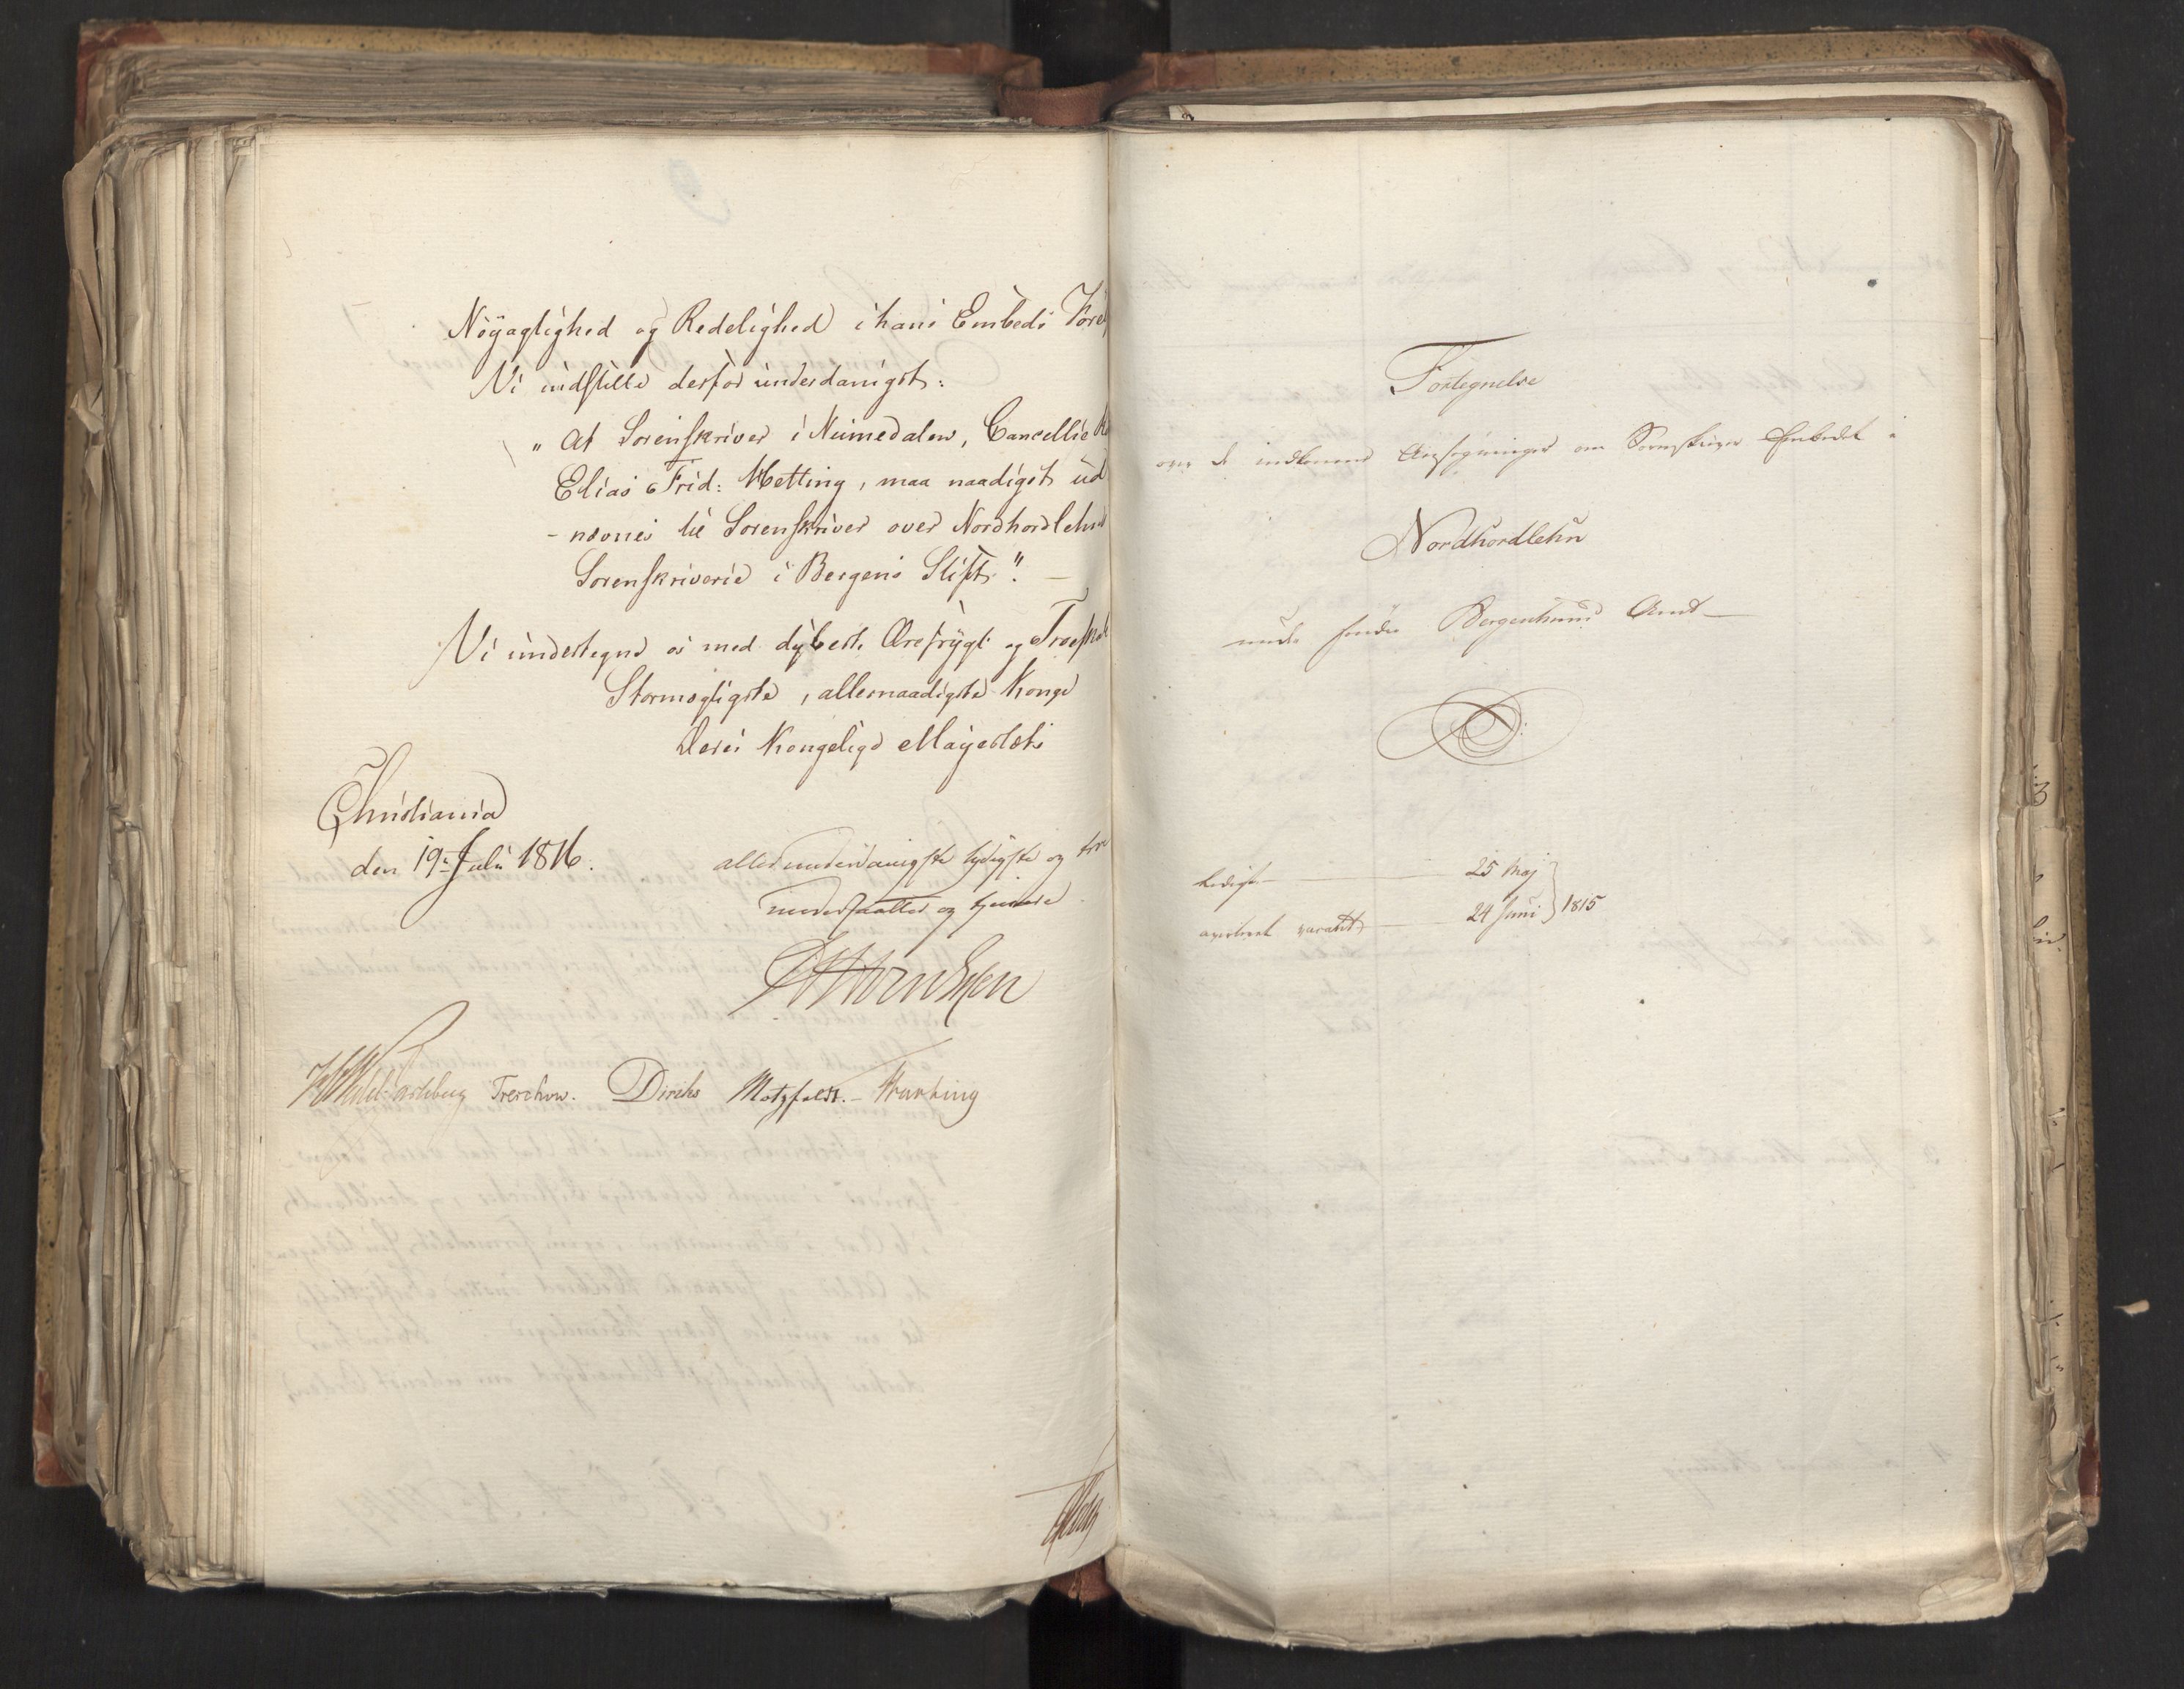 Nöyagtighed og Redelighed i hans Embeds
Vi indstille derfor underdanigst:
„ At Sorenskriver i Numedalen, Cancellie
Elias Frid: Hetting, maa naadigst ud
- nævnes til Sorenskriver over Nordhordlehns
Sorenskriverie i Bergens Stift". —
Vi undertegne os med dybeste Ærefrygt og Troeskab
Stormægtigste, allernaadigste Konge
Deres Kongelige Mayestæts
Christiania
den 19. Julii 1816.
allerunderdanigste lydigste og troe
undersaatter og tjenere
Treschow. Diriks Motzfeldt. —
Fortegnelse
over de indkomne Ansøgninger om Sorenskriver Embedet i
Nordhordlehn
under søndre Bergenhuus Amt —
Ledigt — 25 Maj
averteret vacant — 24 Juni } 1815